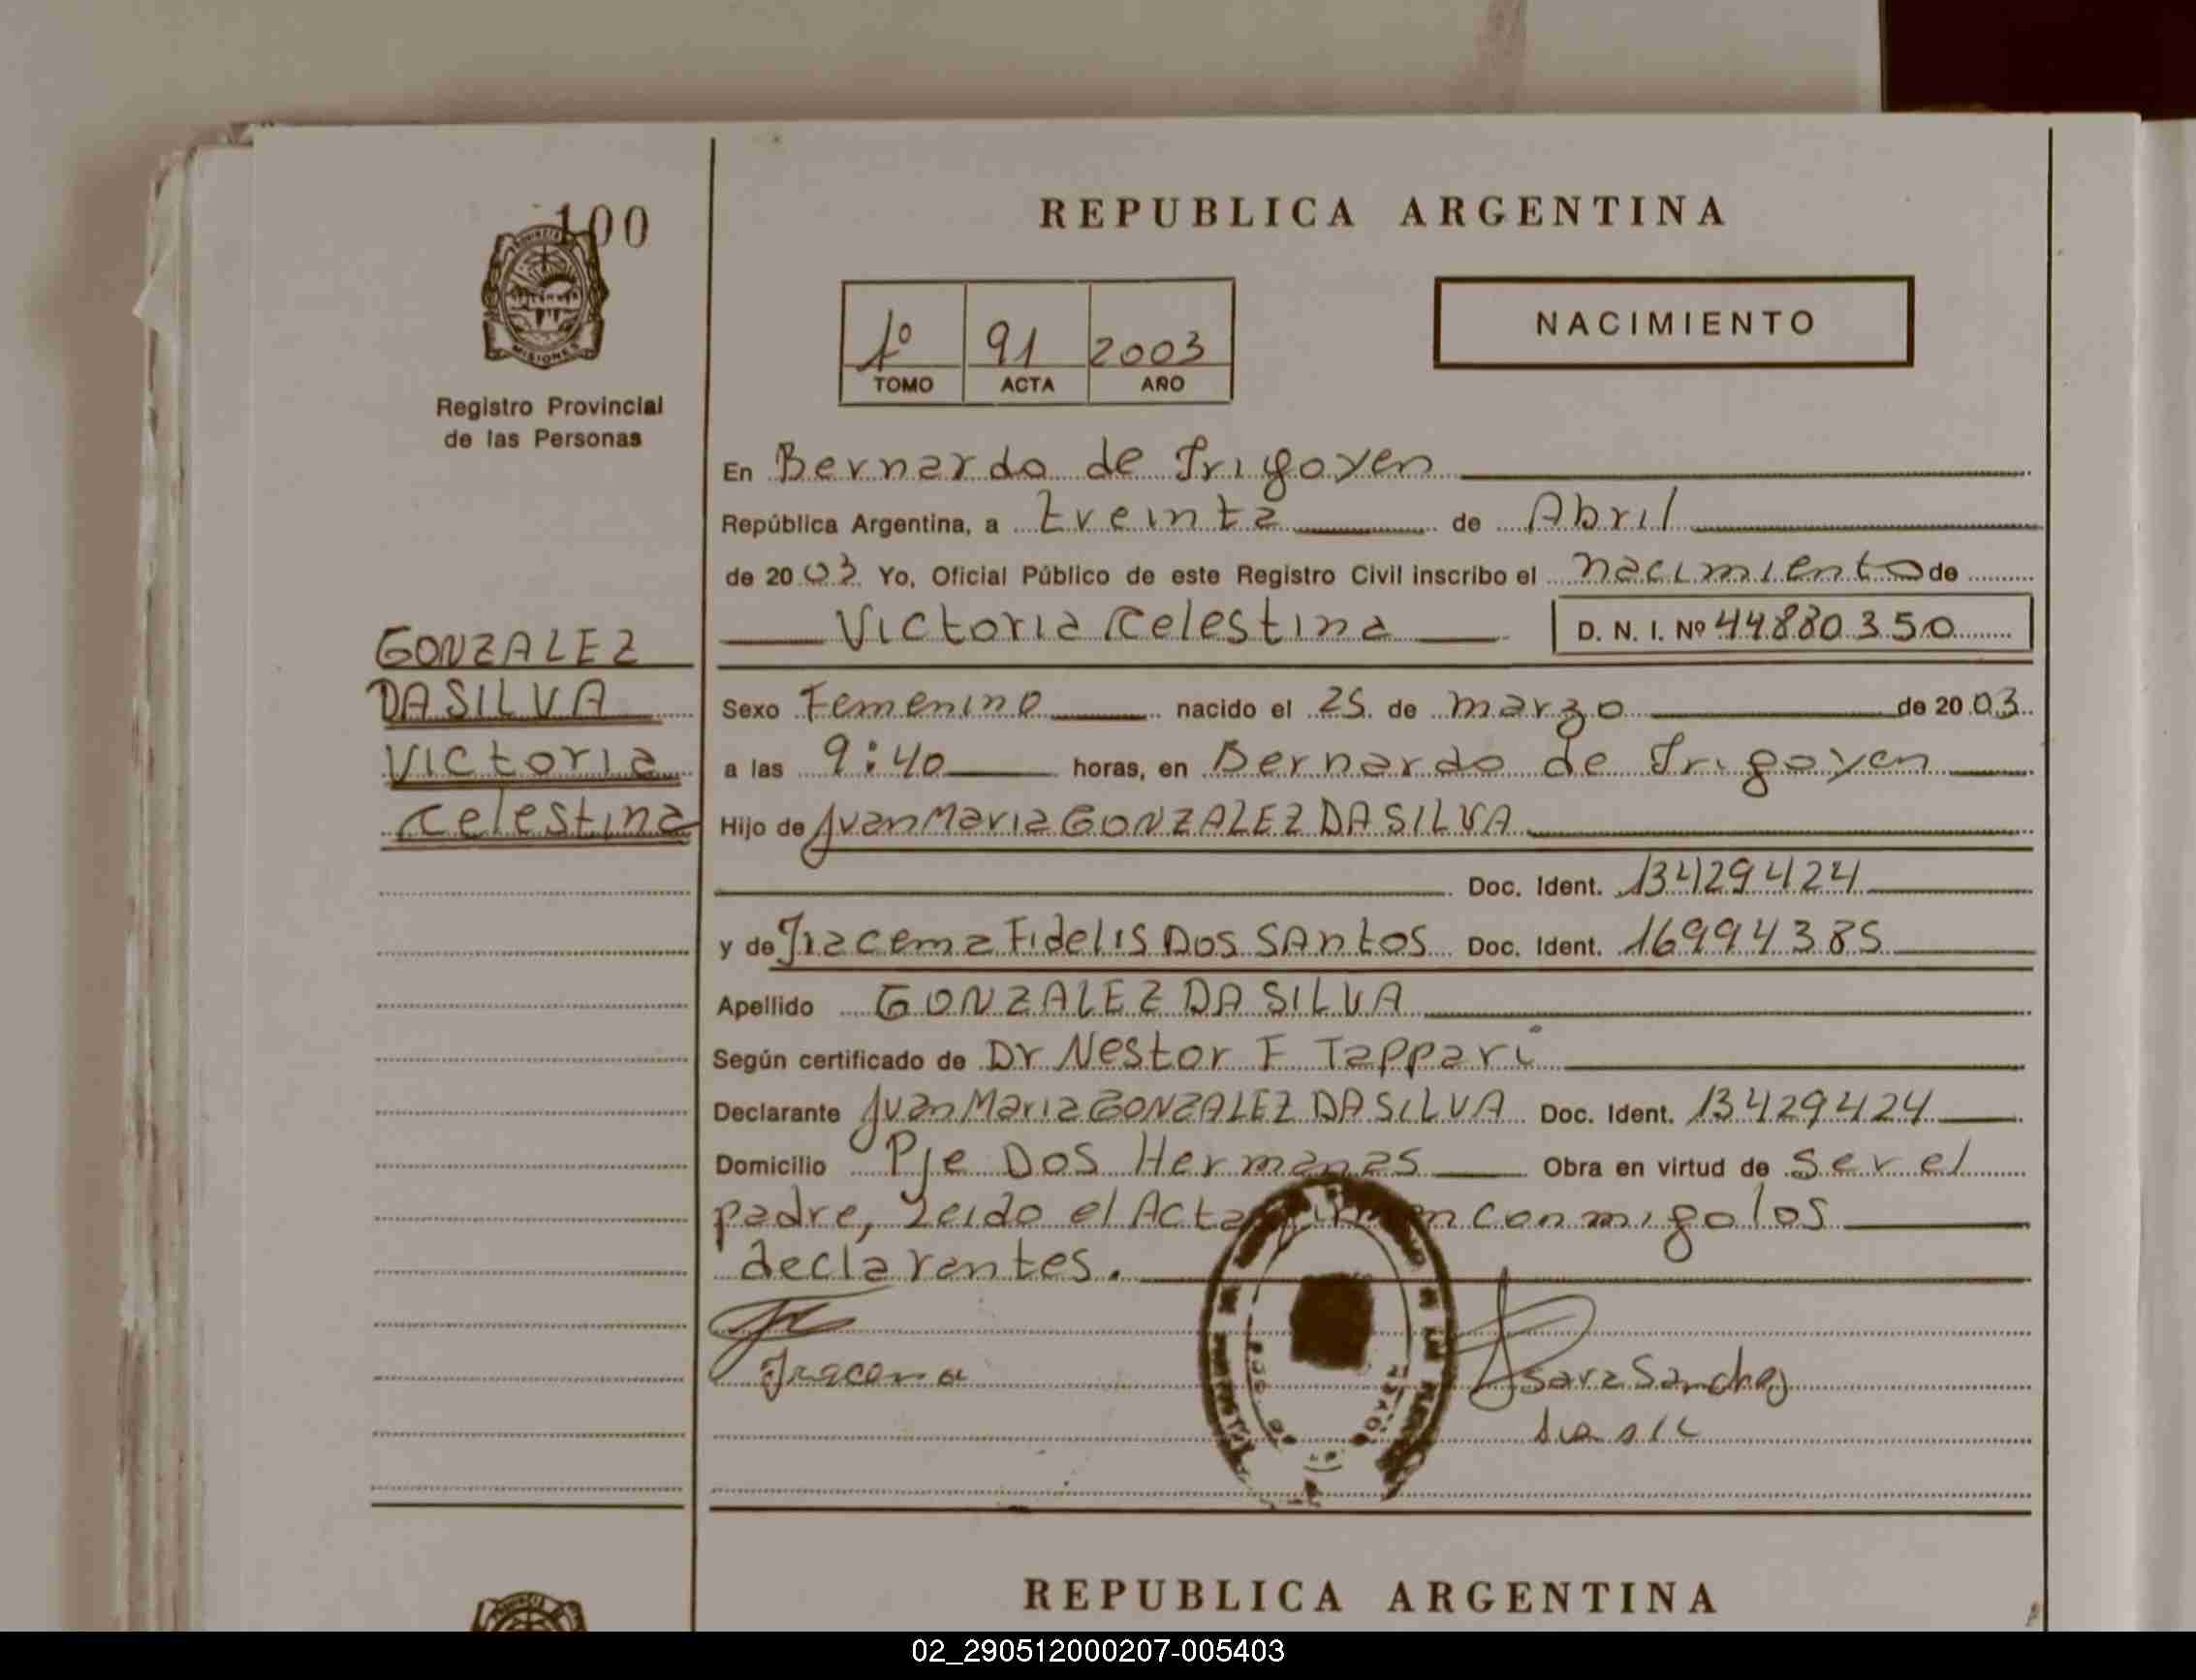 100
MISIONES
Registro Provincial
de las Personas
GONZALEZ
DA SILVA
Victoria
Celestina
REPUBLICA ARGENTINA
1º 91 2003
TOMO ACTA AÑO
NACIMIENTO
En Bernardo de Irigoyen
República Argentina, a treinta de Abril
de 2003 Yo, Oficial Público de este Registro Civil inscribo el nacimiento de
Victoria Celestina D. N. I. Nº 44880350
Sexo Femenino nacido el 25 de marzo de 2003
a las 9:40 horas, en Bernardo de Irigoyen
Hijo de Juan Maria GONZALEZ DA SILVA
Doc. Ident. 13429424
y de Iracema Fidelis Dos SAntos Doc. Ident. 16994385
Apellido GONZALEZ DA SILVA
Según certificado de Dr Nestor F Tappari
Declarante Juan Maria GONZALEZ DA SILVA Doc. Ident. 13429424
Domicilio Pje Dos Hermanas Obra en virtud de ser el
padre, Leido el Acta firman conmigo los
declarantes.
Iracema
Sara Sanchez
REPUBLICA ARGENTINA
02_290512000207-005403